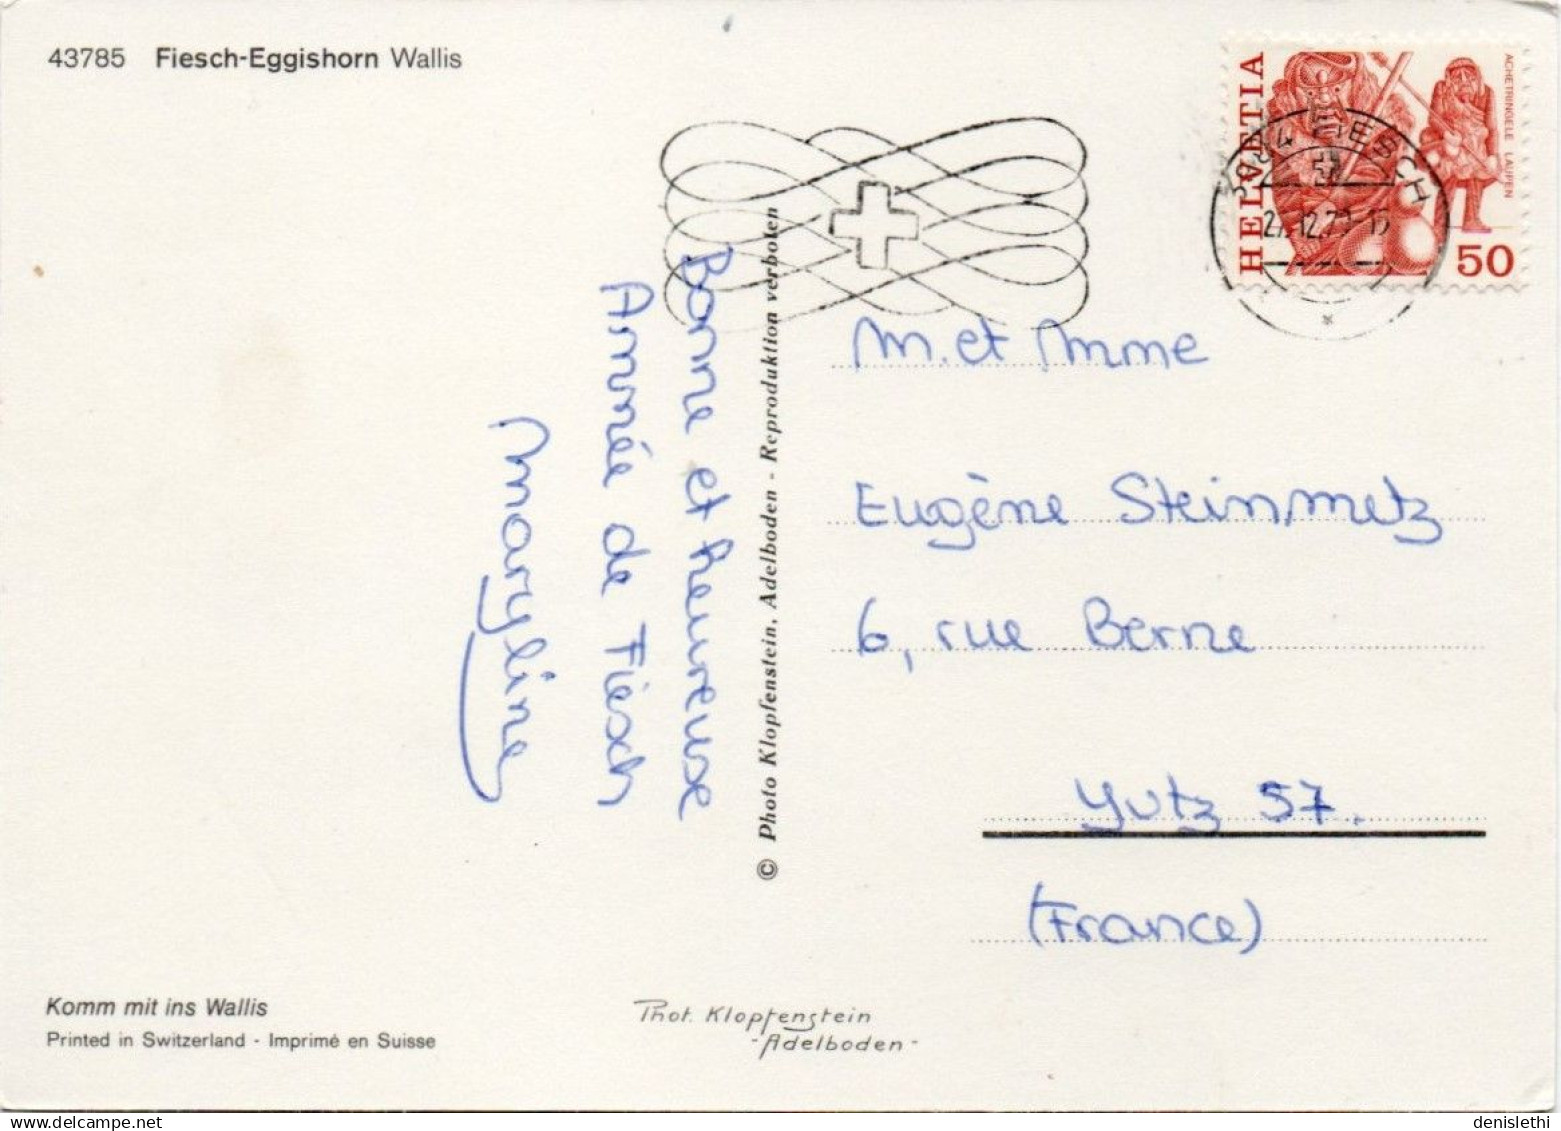 43785 Fiesch-Eggishorn Wallis
HELVETIA
ACHETRINGELE LAUPEN
50
3984 FIESCH
Bonne et heureuse
Année de Fiesch
Maryline
© Photo Klopfenstein, Adelboden - Reproduktion verboten
M. et Mme
Eugène Steinmetz
6, rue Berne
Yutz 57.
(France)
Komm mit ins Wallis
Printed in Switzerland - Imprimé en Suisse
Phot. Klopfenstein
- Adelboden -
denislethi